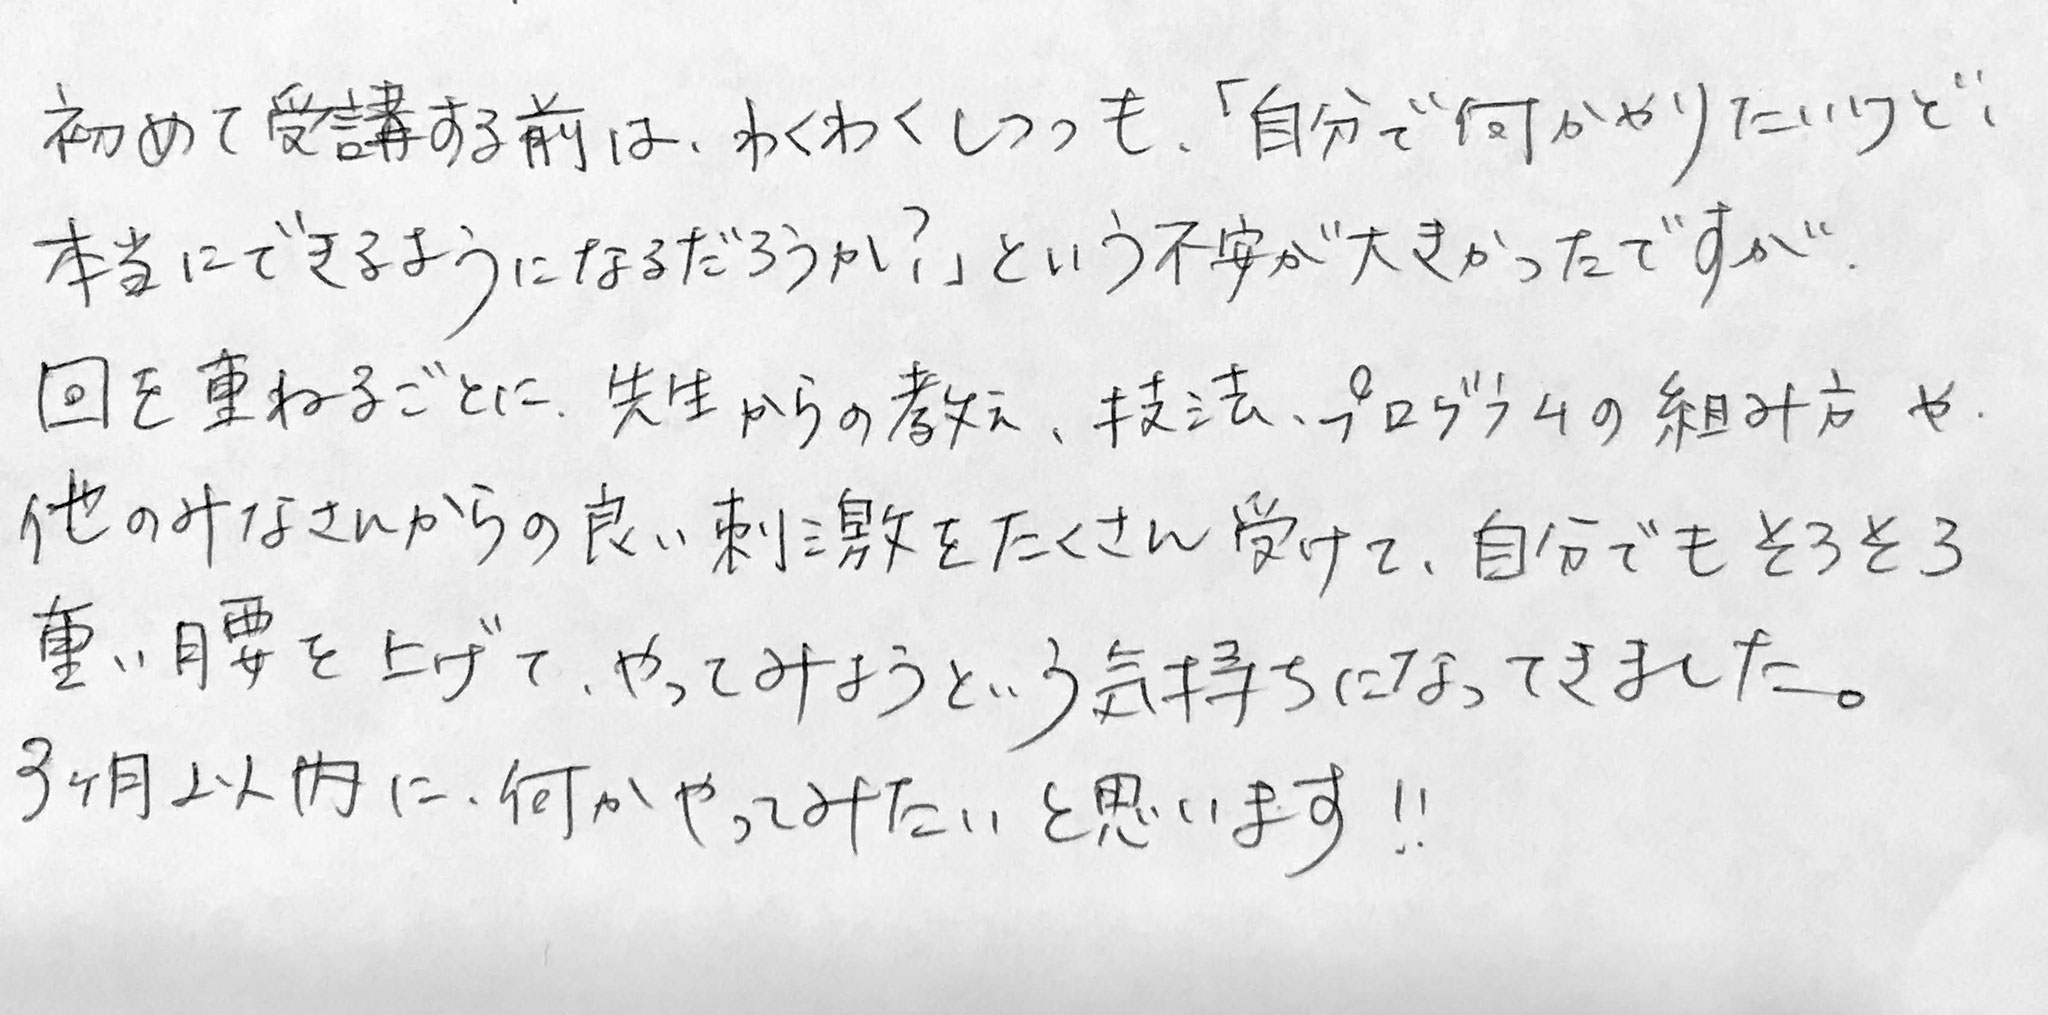 初めて受講する前は、わくわくしつつも、「自分で何かやりたいけど、
本当にできるようになるだろうか?」という不安が大きかったですが、
回を重ねるごとに、先生からの教え、技法、プログラムの組み方や、
他のみなさんからの良い刺激をたくさん受けて、自分でもそろそろ
重い腰を上げて、やってみようという気持ちになってきました。
3ヶ月以内に、何かやってみたいと思います!!